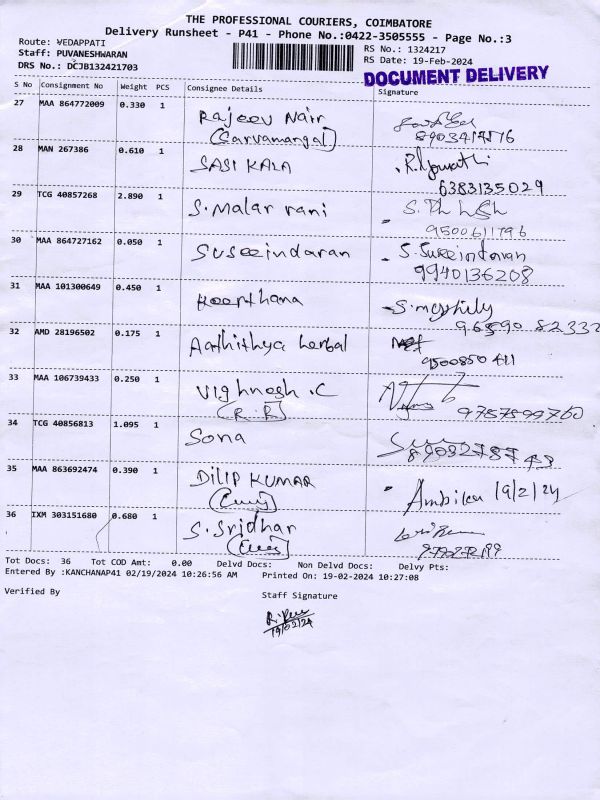 THE PROFESSIONAL COURIERS, COIMBATORE
Delivery Runsheet - P41 - Phone No.:0422-3505555 - Page No.:3
Route: VEDAPPATI
RS No.: 1324217
Staff: PUVANESHWARAN
RS Date: 19-Feb-2024
DRS No.: DCJB132421703
DOCUMENT DELIVERY
S No Consignment No Weight PCS Consignee Details Signature
27 MAA 864772009 0.330 1 Rajeev Nair
(Sarvamangal)
28 MAN 267386 0.610 1 SASI KALA
6383135029
29 TCG 40857268 2.890 1 S. Malar rani
9500611796
30 MAA 864727162 0.050 1 Suseeindaran S. Suseeindaran
9940136208
31 MAA 101300649 0.450 1 Keerthana
96590 82332
32 AMD 28196502 0.175 1 Aathithya herbal
9500850411
33 MAA 106739433 0.250 1 Vighnesh .C
(R.R) 9757599760
34 TCG 40856813 1.095 1 Sona
35 MAA 863692474 0.390 1 DILIP KUMAR
Ambika 19/2/24
36 IXM 303151680 0.680 1 S. Sridhar
Tot Docs: 36 Tot COD Amt: 0.00 Delvd Docs: Non Delvd Docs: Delvy Pts:
Entered By :KANCHANAP41 02/19/2024 10:26:56 AM Printed On: 19-02-2024 10:27:08
Verified By Staff Signature
19/02/24